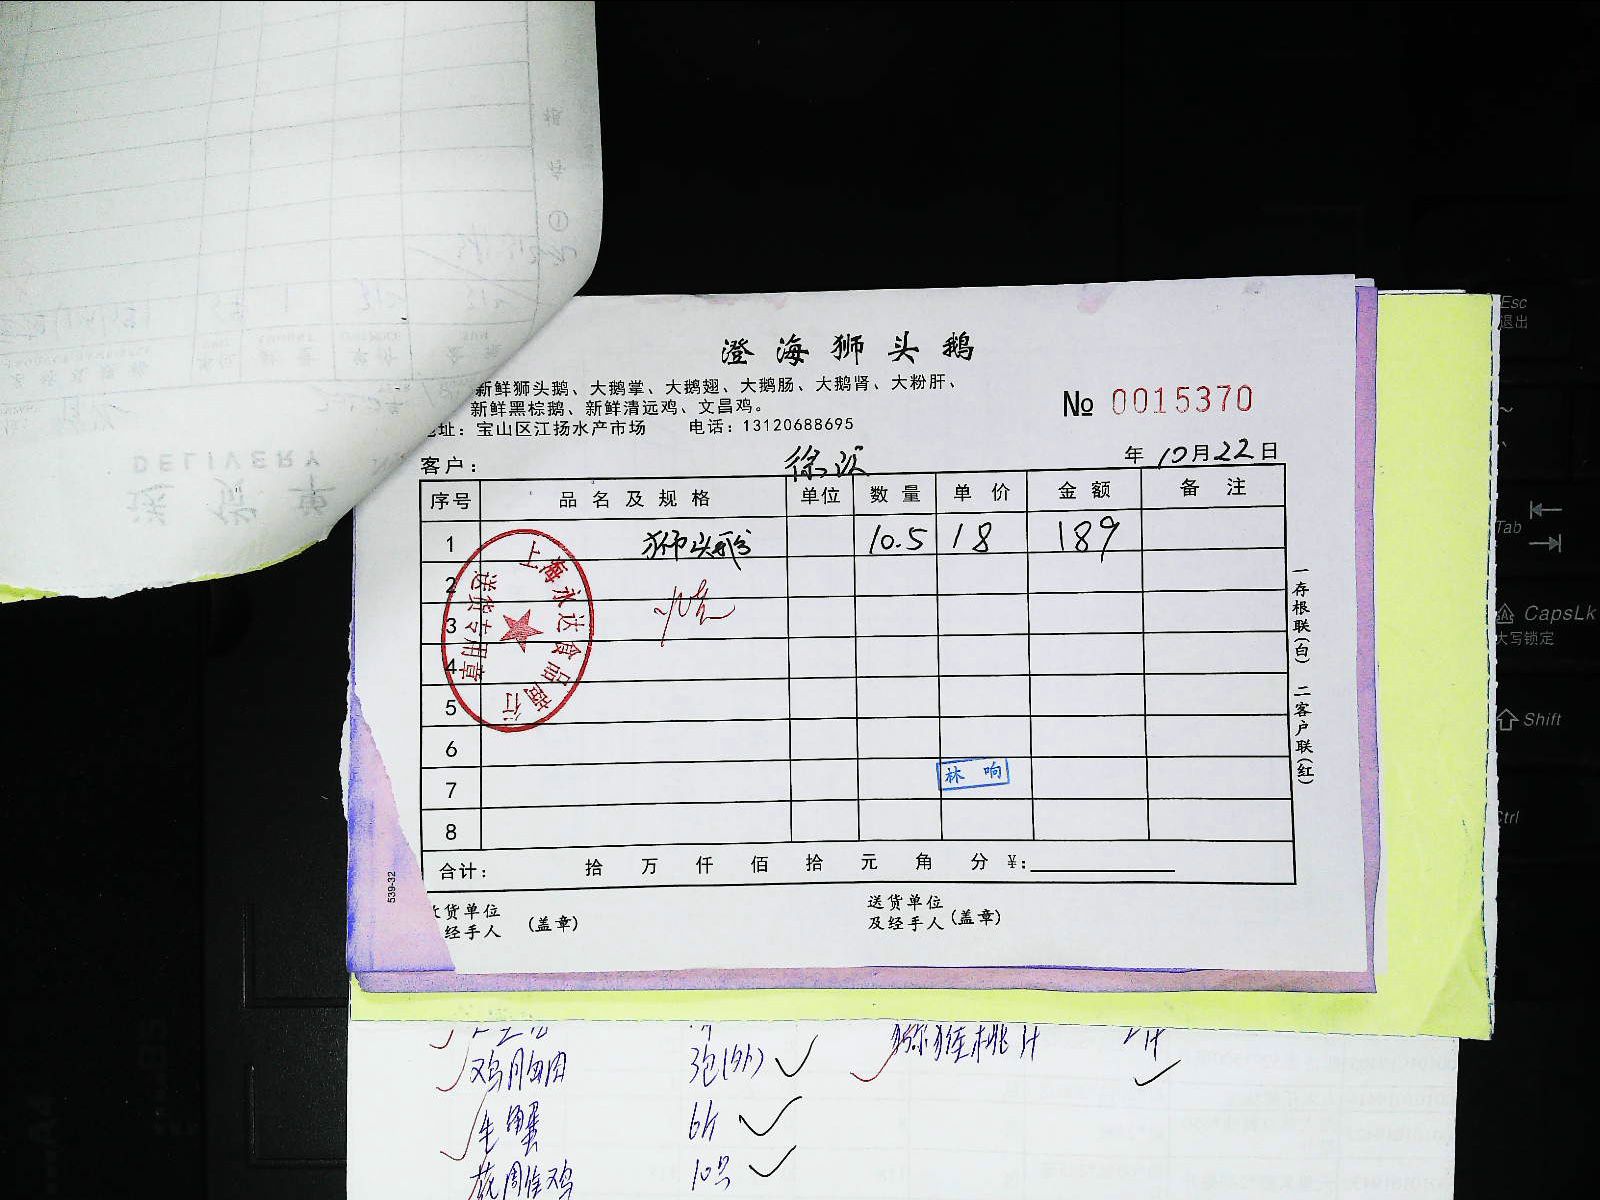 澄海狮头鹅
新鲜狮头鹅、大鹅掌、大鹅翅、大鹅肠、大鹅肾、大粉肝、
新鲜黑棕鹅、新鲜清远鸡、文昌鸡。
址：宝山区江扬水产市场 电话：13120688695
№ 0015370
客户：
年 10月22日
序号 品名及规格 单位 数量 单价 金额 备注
1 狮头 10.5 18 189
2
3
4
5
6
7
8
上海永达食品商行
送货专用章
林响
合计： 拾 万 仟 佰 拾 元 角 分 ¥:
货单位
经手人 (盖章)
送货单位
及经手人 (盖章)
一存根联(白) 二客户联(红)
539-32
送货单
DELIVERY
鸡胸肉 3包(外)
猕猴桃汁
生蟹 6斤
10只
Esc
退出
Tab
CapsLk
大写锁定
Shift
Ctrl